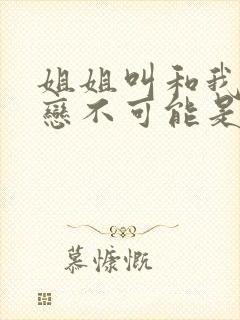 姐姐叫和我
戀不可能是
慕慷慨